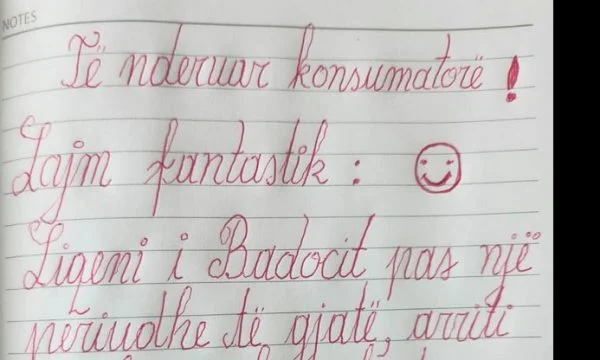 NOTES
Të nderuar konsumatorë!
Lajm fantastik:
Liqeni i Badocit pas një
periudhe të gjatë, arriti